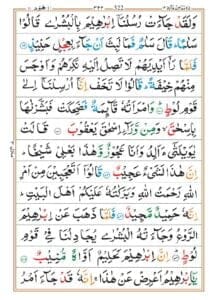 وَلَقَدْ جَآءَتْ رُسُلُنَآ اِبْرٰهِيْمَ بِالْبُشْرٰى قَالُوْا
سَلٰمًا ؕ قَالَ سَلٰمٌ فَمَا لَبِثَ اَنْ جَآءَ بِعِجْلٍ حَنِيْذٍ
فَلَمَّا رَآٰ اَيْدِيَهُمْ لَا تَصِلُ اِلَيْهِ نَكِرَهُمْ وَاَوْجَسَ
مِنْهُمْ خِيْفَةً ؕ قَالُوْا لَا تَخَفْ اِنَّآ اُرْسِلْنَآ اِلٰى
قَوْمِ لُوْطٍ ؕ وَامْرَاَتُهٗ قَآئِمَةٌ فَضَحِكَتْ فَبَشَّرْنٰهَا
بِاِسْحٰقَ ۙ وَمِنْ وَّرَآءِ اِسْحٰقَ يَعْقُوْبَ قَالَتْ
يٰوَيْلَتٰٓى ءَاَلِدُ وَاَنَا عَجُوْزٌ وَّهٰذَا بَعْلِيْ شَيْخًا ؕ
اِنَّ هٰذَا لَشَيْءٌ عَجِيْبٌ قَالُوْٓا اَتَعْجَبِيْنَ مِنْ اَمْرِ
اللّٰهِ رَحْمَتُ اللّٰهِ وَبَرَكٰتُهٗ عَلَيْكُمْ اَهْلَ الْبَيْتِ ؕ
اِنَّهٗ حَمِيْدٌ مَّجِيْدٌ فَلَمَّا ذَهَبَ عَنْ اِبْرٰهِيْمَ
الرَّوْعُ وَجَآءَتْهُ الْبُشْرٰى يُجَادِلُنَا فِيْ قَوْمِ
لُوْطٍ ؕ اِنَّ اِبْرٰهِيْمَ لَحَلِيْمٌ اَوَّاهٌ مُّنِيْبٌ
يٰٓاِبْرٰهِيْمُ اَعْرِضْ عَنْ هٰذَا ۚ اِنَّهٗ قَدْ جَآءَ اَمْرُ